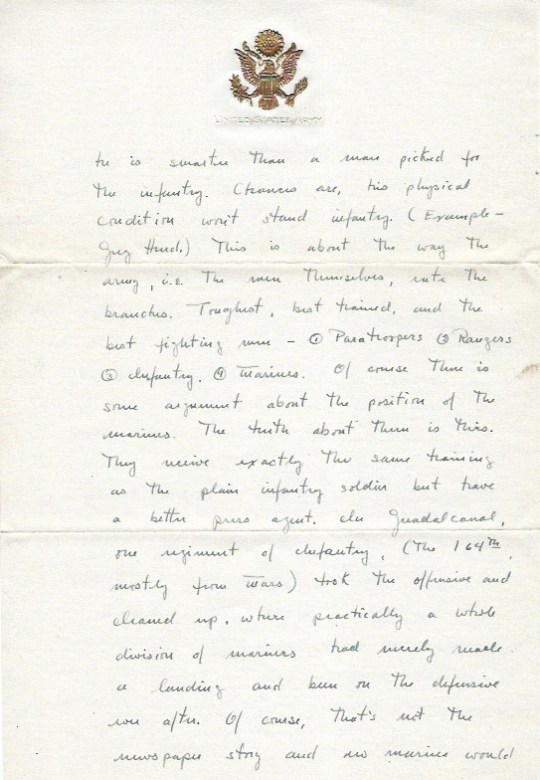 UNITED STATES ARMY
he is smarter than a man picked for
the infantry. Chances are, his physical
condition won't stand infantry. (Example-
Greg Hurd.) This is about the way the
army, i.e. the men themselves, rate the
branches. Toughest, best trained, and the
best fighting men - ① Paratroopers ② Rangers
③ Infantry. ④ Marines. Of course there is
some argument about the position of the
marines. The truth about them is this.
They receive exactly the same training
as the plain infantry soldier but have
a better press agent. In Guadalcanal,
one regiment of infantry, (the 164th,
mostly from) took the offensive and
cleaned up, where practically a whole
division of marines had merely made
a landing and been on the defensive
ever after. Of course, that's not the
newspaper story and no marine would